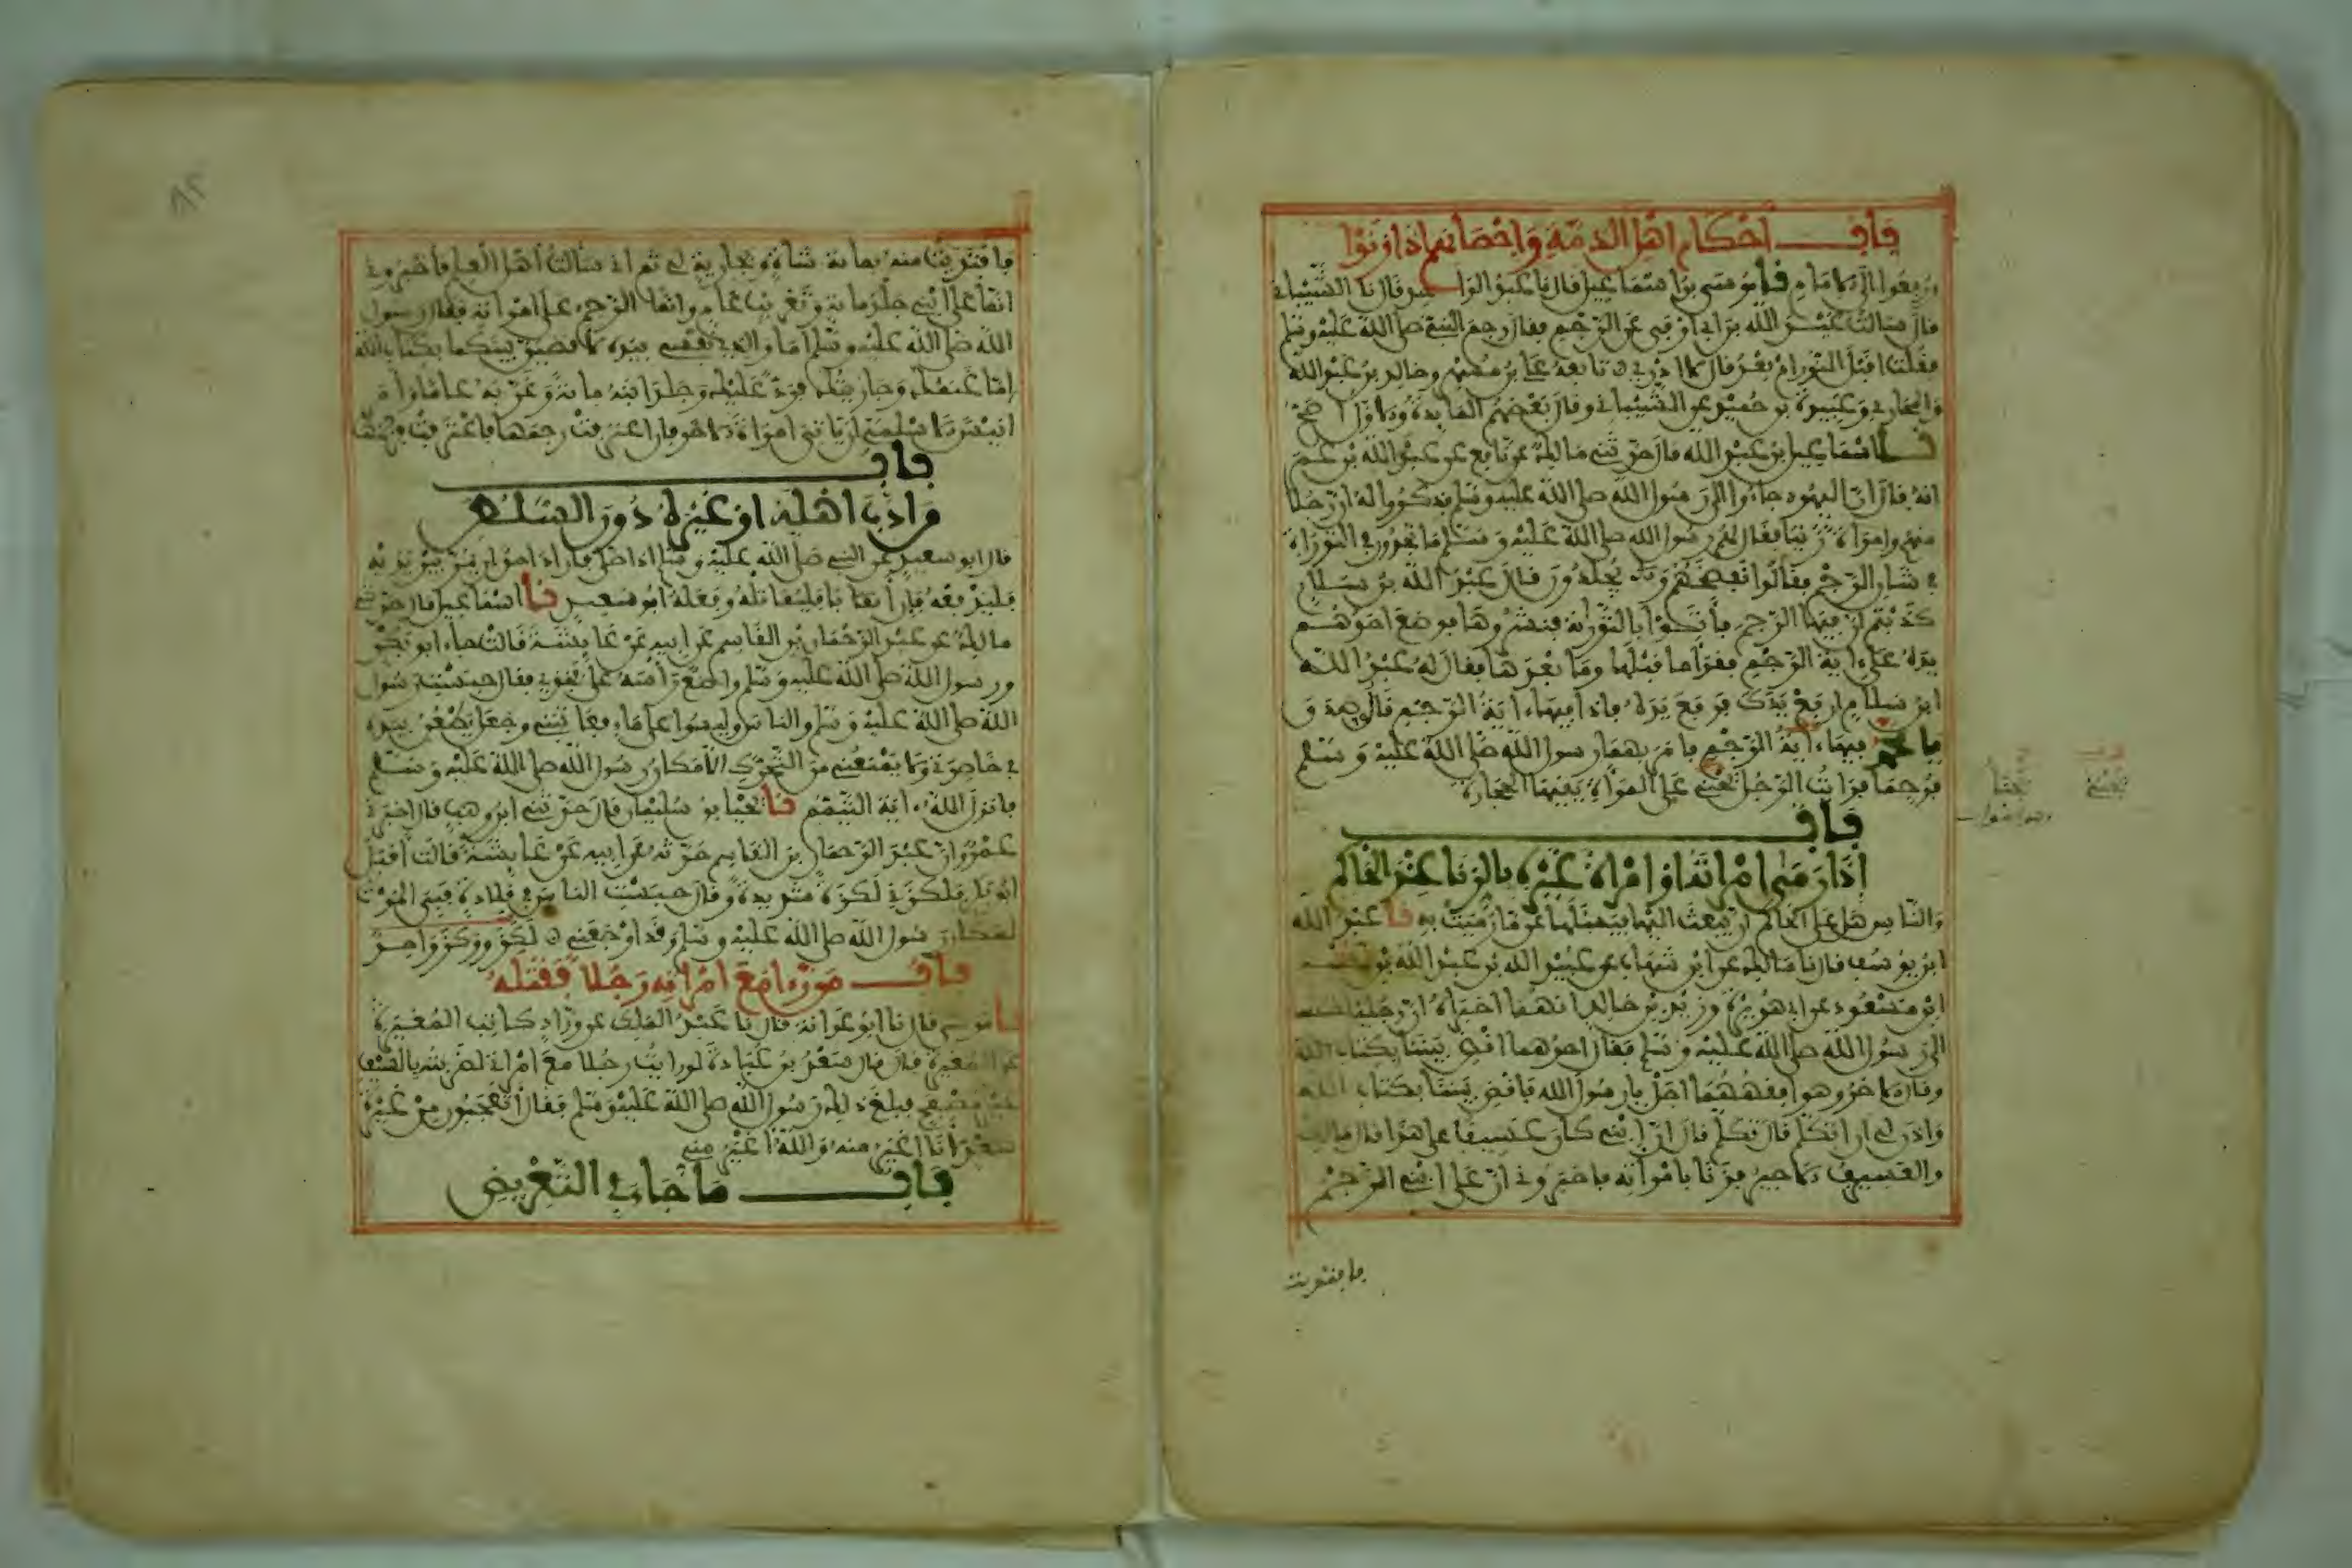 باب أحكام أهل الذمة وإحصانهم إذا زنوا
ورفعوا إلى الامام نا موسى بن اسماعيل قال نا عبد الواحد قال نا الشيباني
قال سالت عبد الله بن ابي اوفى عن الرجم فقال رجم النبي صلى الله عليه وسلم
فقلت اقبل النور ام بعد قال لا ادري تابعه علي بن مسهر وخالد بن عبد الله
والمحاربي وعبيدة بن حميد عن الشيباني وقال بعضهم المايدة والاول اصح
نا اسماعيل بن عبد الله قال حدثني مالك عن نافع عن عبد الله بن عمر
انه قال ان اليهود جاءوا الى رسول الله صلى الله عليه وسلم فذكروا له ان رجلا
منهم وامراة زنيا فقال لهم رسول الله صلى الله عليه وسلم ما تجدون في التوراة
في شان الرجم فقالوا نفضحهم ويجلدون قال عبد الله بن سلام
كذبتم ان فيها الرجم فأتوا بالتوراة فنشروها فوضع احدهم
يده على ءاية الرجم فقرأ ما قبلها وما بعدها فقال له عبد الله
ابن سلام ارفع يدك فرفع يده فاذا فيها ءاية الرجم قالوا صدق
يا محمد فيها ءاية الرجم فامر بهما رسول الله صلى الله عليه وسلم
فرجما فرايت الرجل يحني على المرأة يقيها الحجارة
باب
إذا رمى امراته او امراة غيره بالزنا عند الحاكم
والناس هل على الحاكم ان يبعث اليها فيسئلها عما رميت به نا عبد الله
ابن يوسف قال نا مالك عن ابن شهاب عن عبيد الله بن عبد الله بن عتبة
ابن مسعود عن ابي هريرة وزيد بن خالد انهما اخبراه ان رجلين اختصما
الى رسول الله صلى الله عليه وسلم فقال احدهما اقض بيننا بكتاب الله
وقال الاخر وهو افقههما اجل يا رسول الله فاقض بيننا بكتاب الله
واذن لي ان اتكلم قال تكلم قال ان ابني كان عسيفا على هذا قال مالك
والعسيف الاجير فزنا بامراته فاخبروني ان على ابني الرجم
فافتديت
فافتديت منه بمائة شاة وبجارية لي ثم اني سالت أهل العلم فأخبروني
انما على ابني جلد مائة وتغريب عام وانما الرجم على امراته فقال رسول
الله صلى الله عليه وسلم أما والذي نفسي بيده لاقضين بينكما بكتاب الله
اما غنمك وجاريتك فرد عليك وجلد ابنه مائة وغربه عاما وامر
انيسا الاسلمي ان ياتي امراة الاخر فان اعترفت رجمها فاعترفت فرجمها
باب
من ادب اهله او غيره دون السلطن
قال ابو سعيد عن النبي صلى الله عليه وسلم اذا صلى فاراد احد ان يمر بين يديه
فليدفعه فان أبى فليقاتله وفعله ابو سعيد نا اسماعيل قال حدثني
مالك عن عبد الرحمان بن القاسم عن ابيه عن عايشة قالت جاء ابو بكر
ورسول الله صلى الله عليه وسلم واضع رأسه على فخذي فقال حبست رسول
الله صلى الله عليه وسلم والناس وليسوا على ماء فعاتبني وجعل يطعن بيده
في خاصرتي ولا يمنعني من التحرك الا مكان رسول الله صلى الله عليه وسلم
فانزل الله ءاية التيمم نا يحيا بن سليمان قال حدثني ابن وهب قال اخبرني
عمرو ان عبد الرحمان بن القاسم حدثه عن ابيه عن عايشة قالت أقبل
ابو بكر فلكزني لكزة شديدة وقال حبست الناس في قلادة فبي الموت
لمكان رسول الله صلى الله عليه وسلم وقد اوجعني لكز ووكز واحد
باب من رءا مع امراته رجلا فقتله
نا موسى قال نا ابو عوانة قال نا عبد الملك عن وراد كاتب المغيرة
عن المغيرة قال قال سعد بن عبادة لو رايت رجلا مع امراتي لضربته بالسيف
غير مصفح فبلغ ذلك رسول الله صلى الله عليه وسلم فقال أتعجبون من غيرة
سعد أنا اغير منه والله أغير مني
باب ما جاء في التعريض